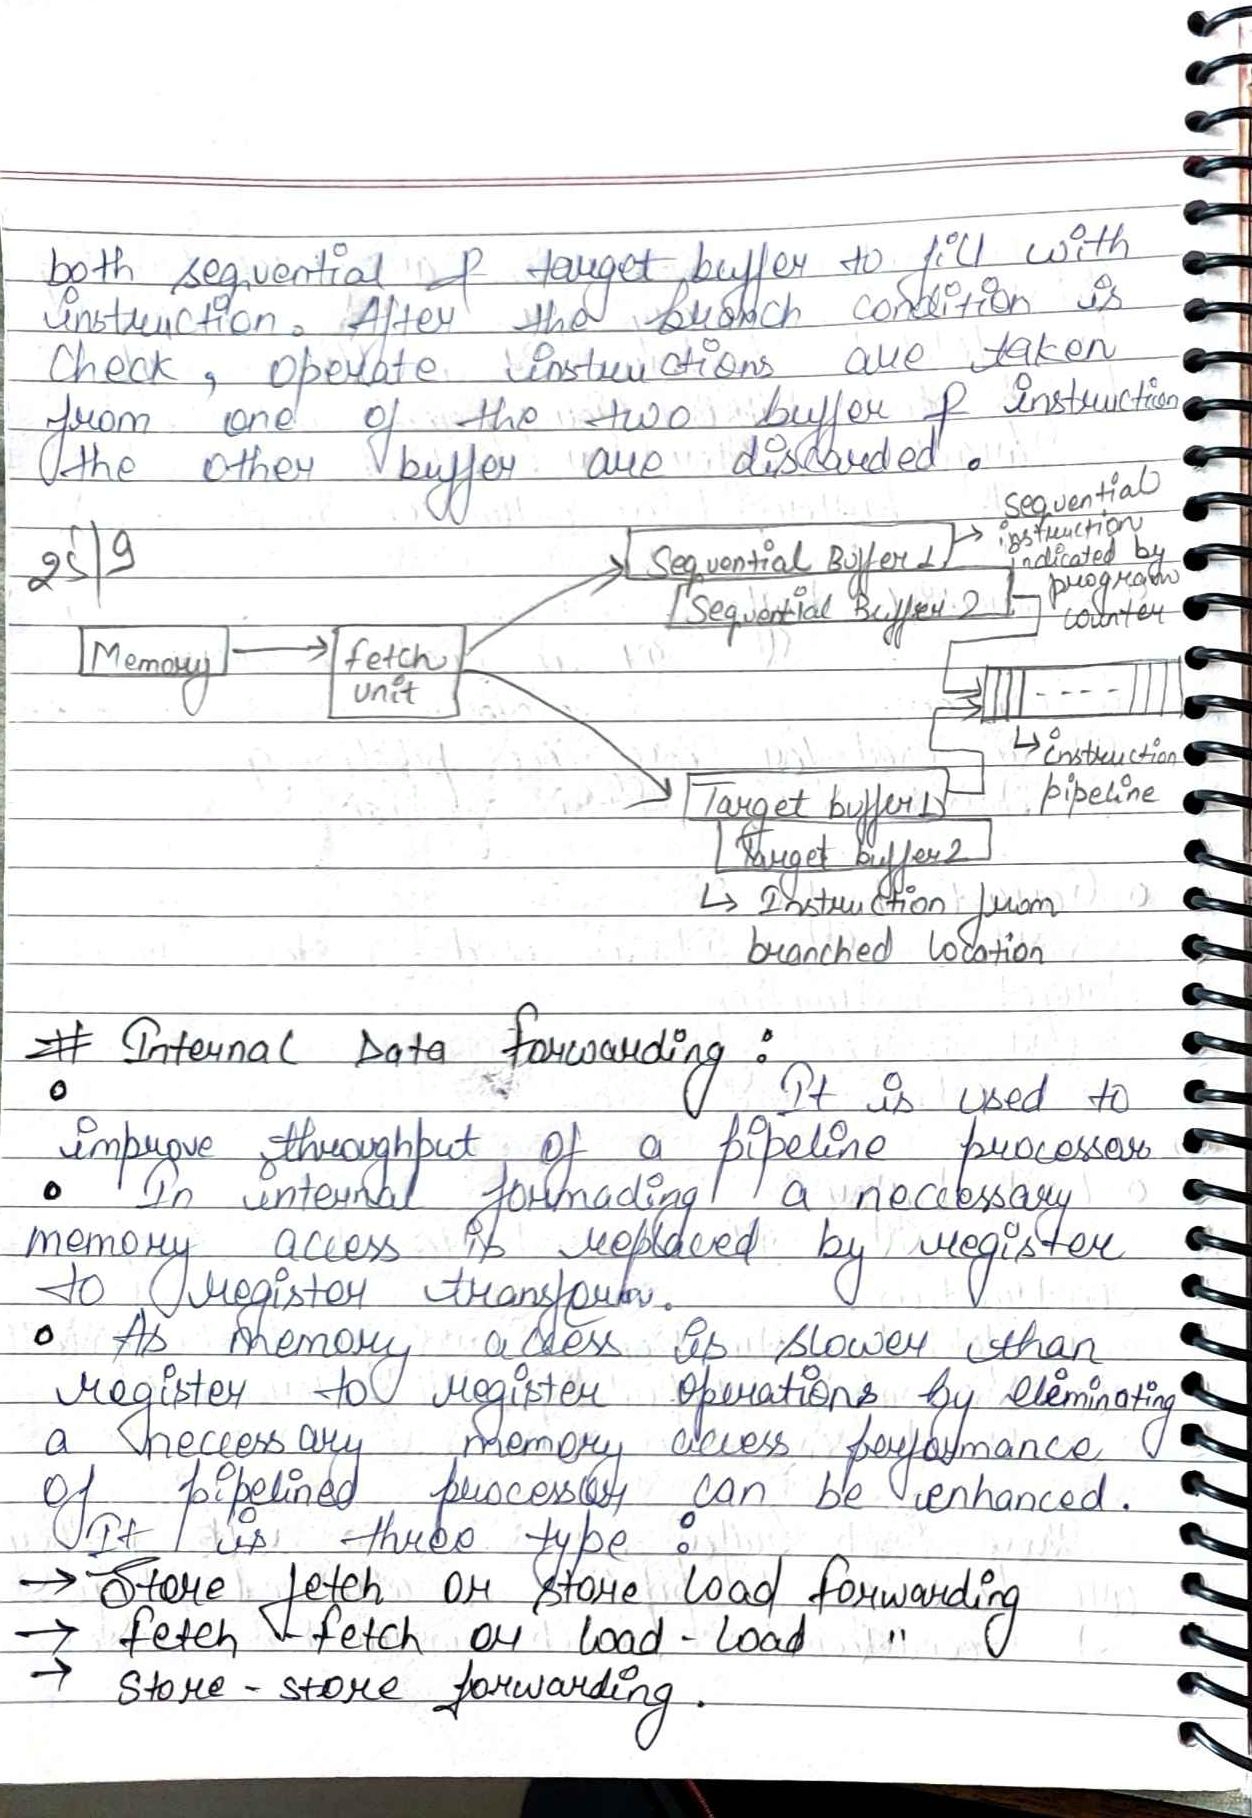 both sequential & target buffer to fill with
instruction. After the branch condition is
Check, operate instructions are taken
from one of the two buffer & instruction
the other buffer are discarded.
25|9
Sequential Buffer 1
Sequential Buffer 2
→ sequential
instruction
indicated by
program
counter
Memory
fetch
unit
↳ instruction
pipeline
Target buffer 1
Target buffer 2
↳ Instruction from
branched location
# Internal Data forwarding :
It is used to
improve throughput of a pipeline processor
• In internal formading a neccessary
memory access is replaced by register
to register
• As memory access is slower than
register to register operations by eleminating
a neccessary memory access performance
of pipelined processor can be enhanced.
It is three type :
→ Store fetch or store load forwarding
→ fetch - fetch or load - load "
→ store - store forwarding.